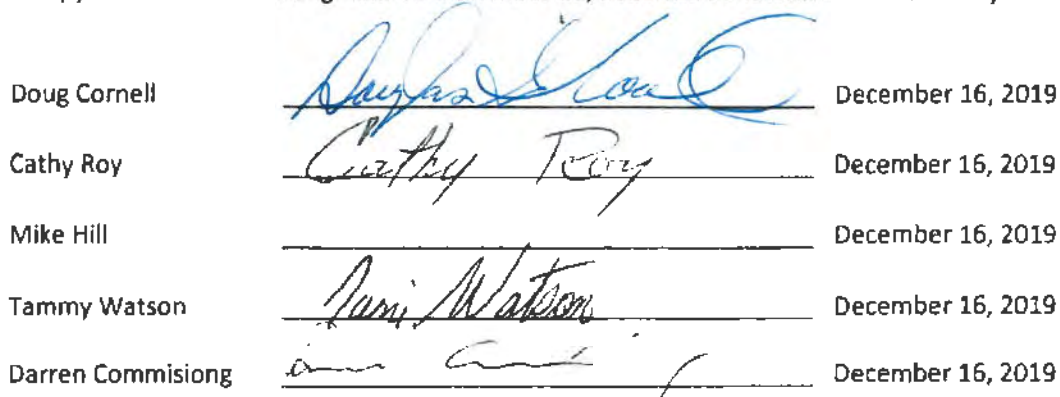 Doug Cornell December 16, 2019
Cathy Roy Cathy Roy December 16, 2019
Mike Hill December 16, 2019
Tammy Watson Tami Watson December 16, 2019
Darren Commisiong December 16, 2019